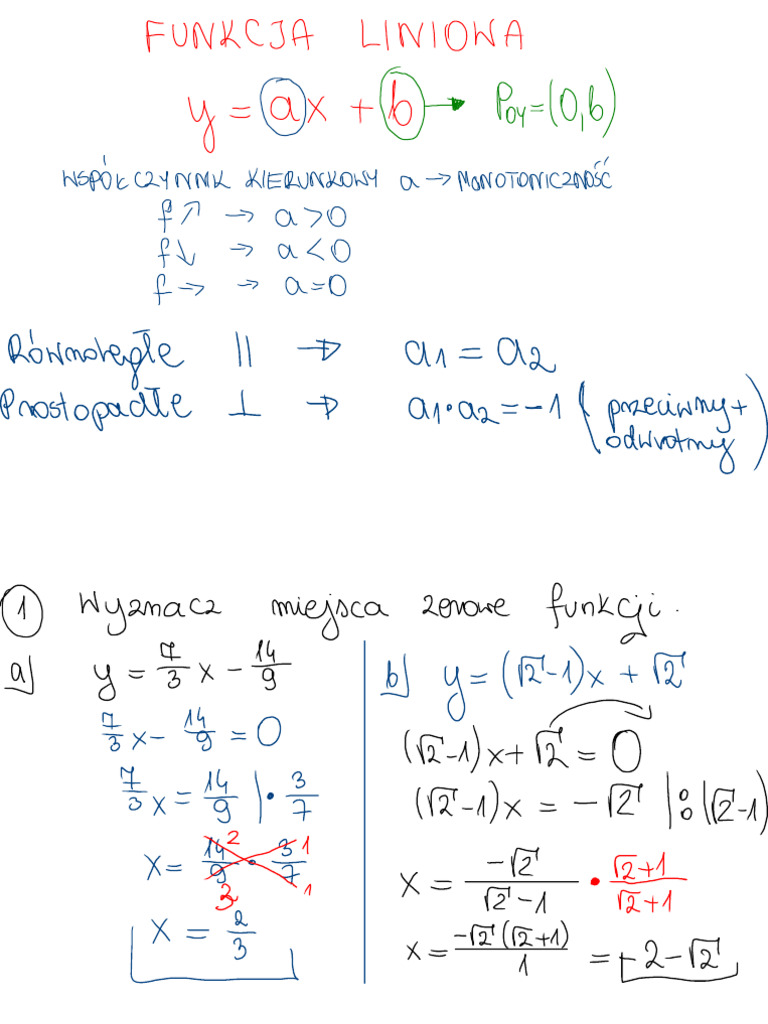 FUNKCJA LINIOWA
y = ax + b → Poy=(0,b)
WSPÓŁCZYNNIK KIERUNKOWY a → MONOTONICZNOŚĆ
f↗ → a>0
f↘ → a<0
f→ → a=0
Równoległe || → a₁ = a₂
Prostopadłe ⊥ → a₁·a₂ = -1 (przeciwny + odwrotny)
① Wyznacz miejsca zerowe funkcji.
a) y = 7/3 x - 14/9
7/3 x - 14/9 = 0
7/3 x = 14/9 |· 3/7
x = 14/9 · 3/7 2 1 3 1
x = 2/3
b) y = (√2-1)x + √2
(√2-1)x + √2 = 0
(√2-1)x = -√2 |:(√2-1)
x = -√2/(√2-1) · (√2+1)/(√2+1)
x = -√2(√2+1)/1 = -2-√2